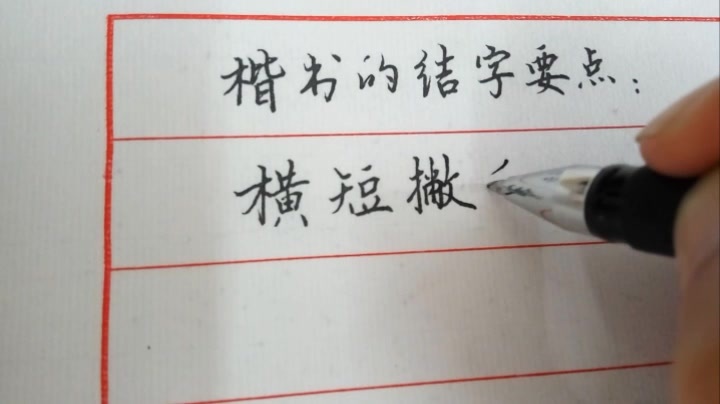 楷书的结字要点：
横短撇